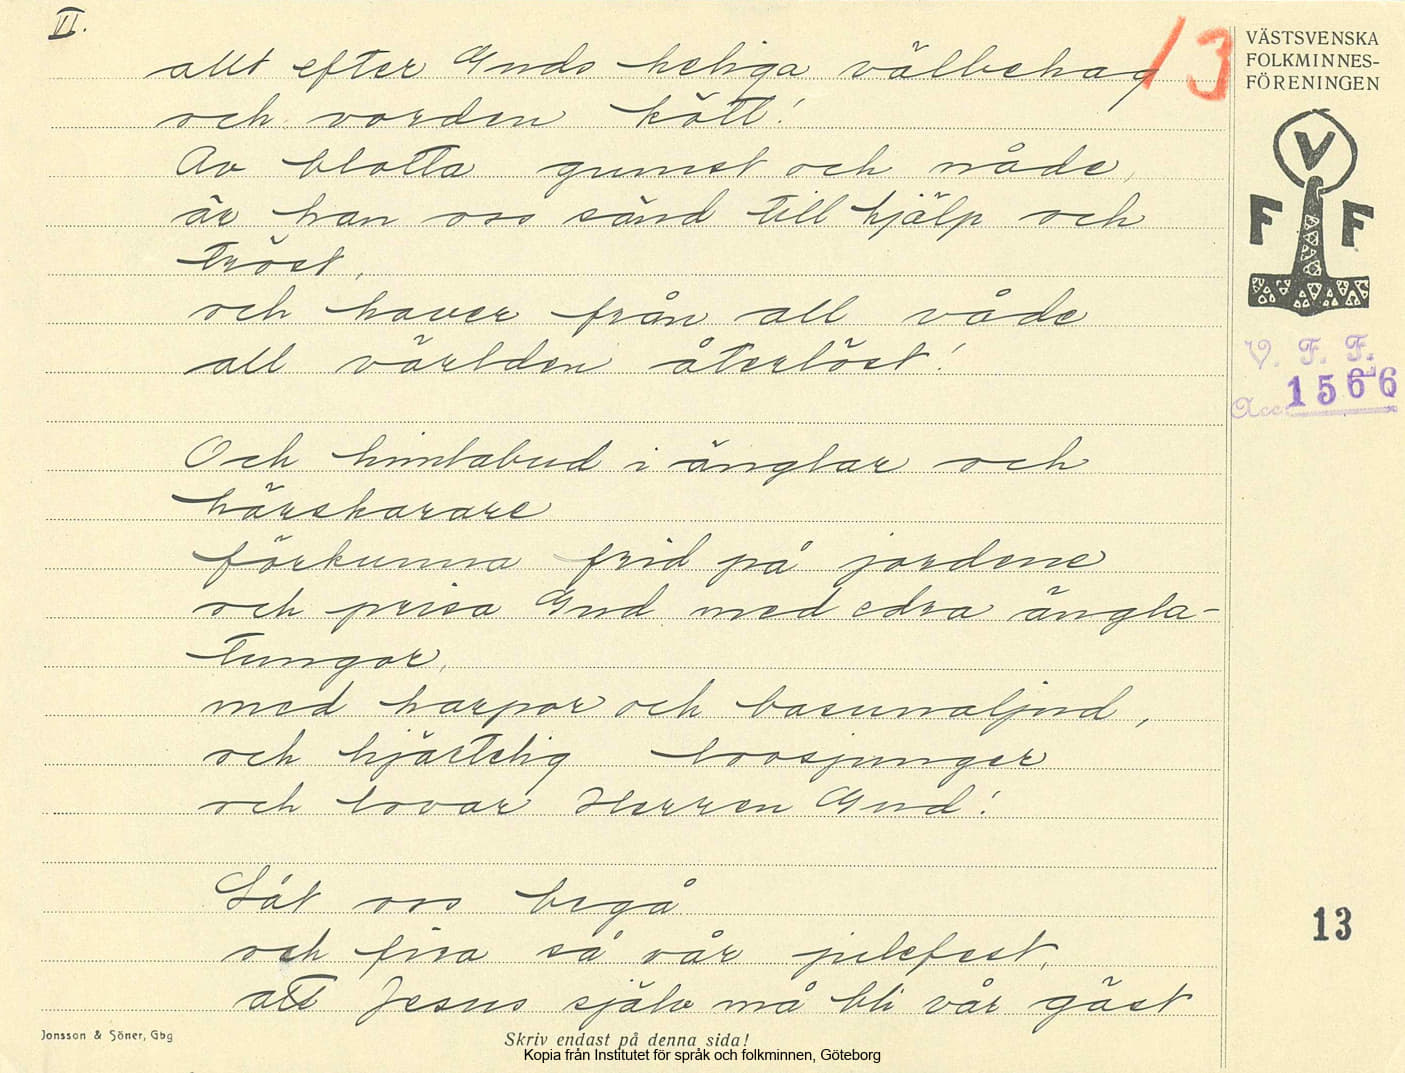 II.
13
allt efter Guds heliga välbehag
och vorden kött!
Av blotta gunst och nåde,
är han oss sänd till hjälp och
tröst,
och haver från all våde
all världen återlöst!
Och himlabud i änglar och
härskarare
förkunna frid på jordene
och prisa Gud med edra ängla-
tungor,
med harpor och basunaljud,
och hjärtelig lovsjunger
och lovar Herren Gud!
Låt oss begå
och fira så vår julefest,
att Jesus själv må bli vår gäst
VÄSTSVENSKA
FOLKMINNES-
FÖRENINGEN
V
F F
V. F. F.
Acc. 1566
13
Jonsson & Söner, Gbg
Skriv endast på denna sida!
Kopia från Institutet för språk och folkminnen, Göteborg